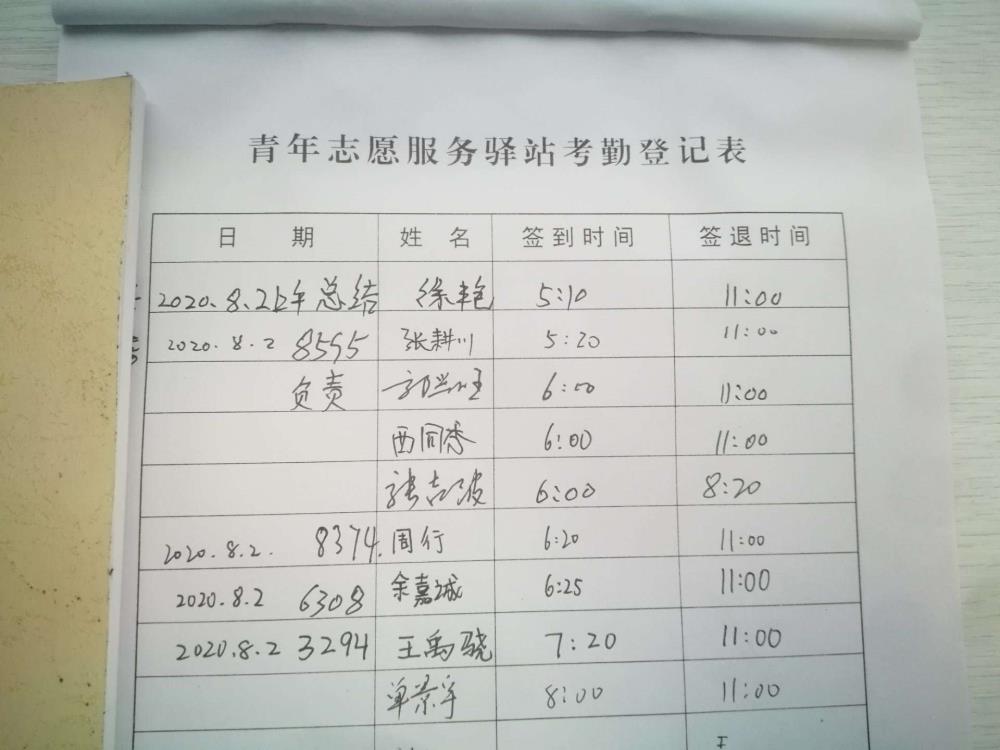 青年志愿服务驿站考勤登记表
日 期 姓 名 签到时间 签退时间
2020.8.2上午总结 徐艳 5:10 11:00
2020.8.2 8595 张耕川 5:20 11:00
负责 6:00 11:00
西同秀 6:00 11:00
张志波 6:00 8:20
2020.8.2. 8374. 周行 6:20 11:00
2020.8.2 6308 余嘉诚 6:25 11:00
2020.8.2 3294 王禹骁 7:20 11:00
单景宇 8:00 11:00